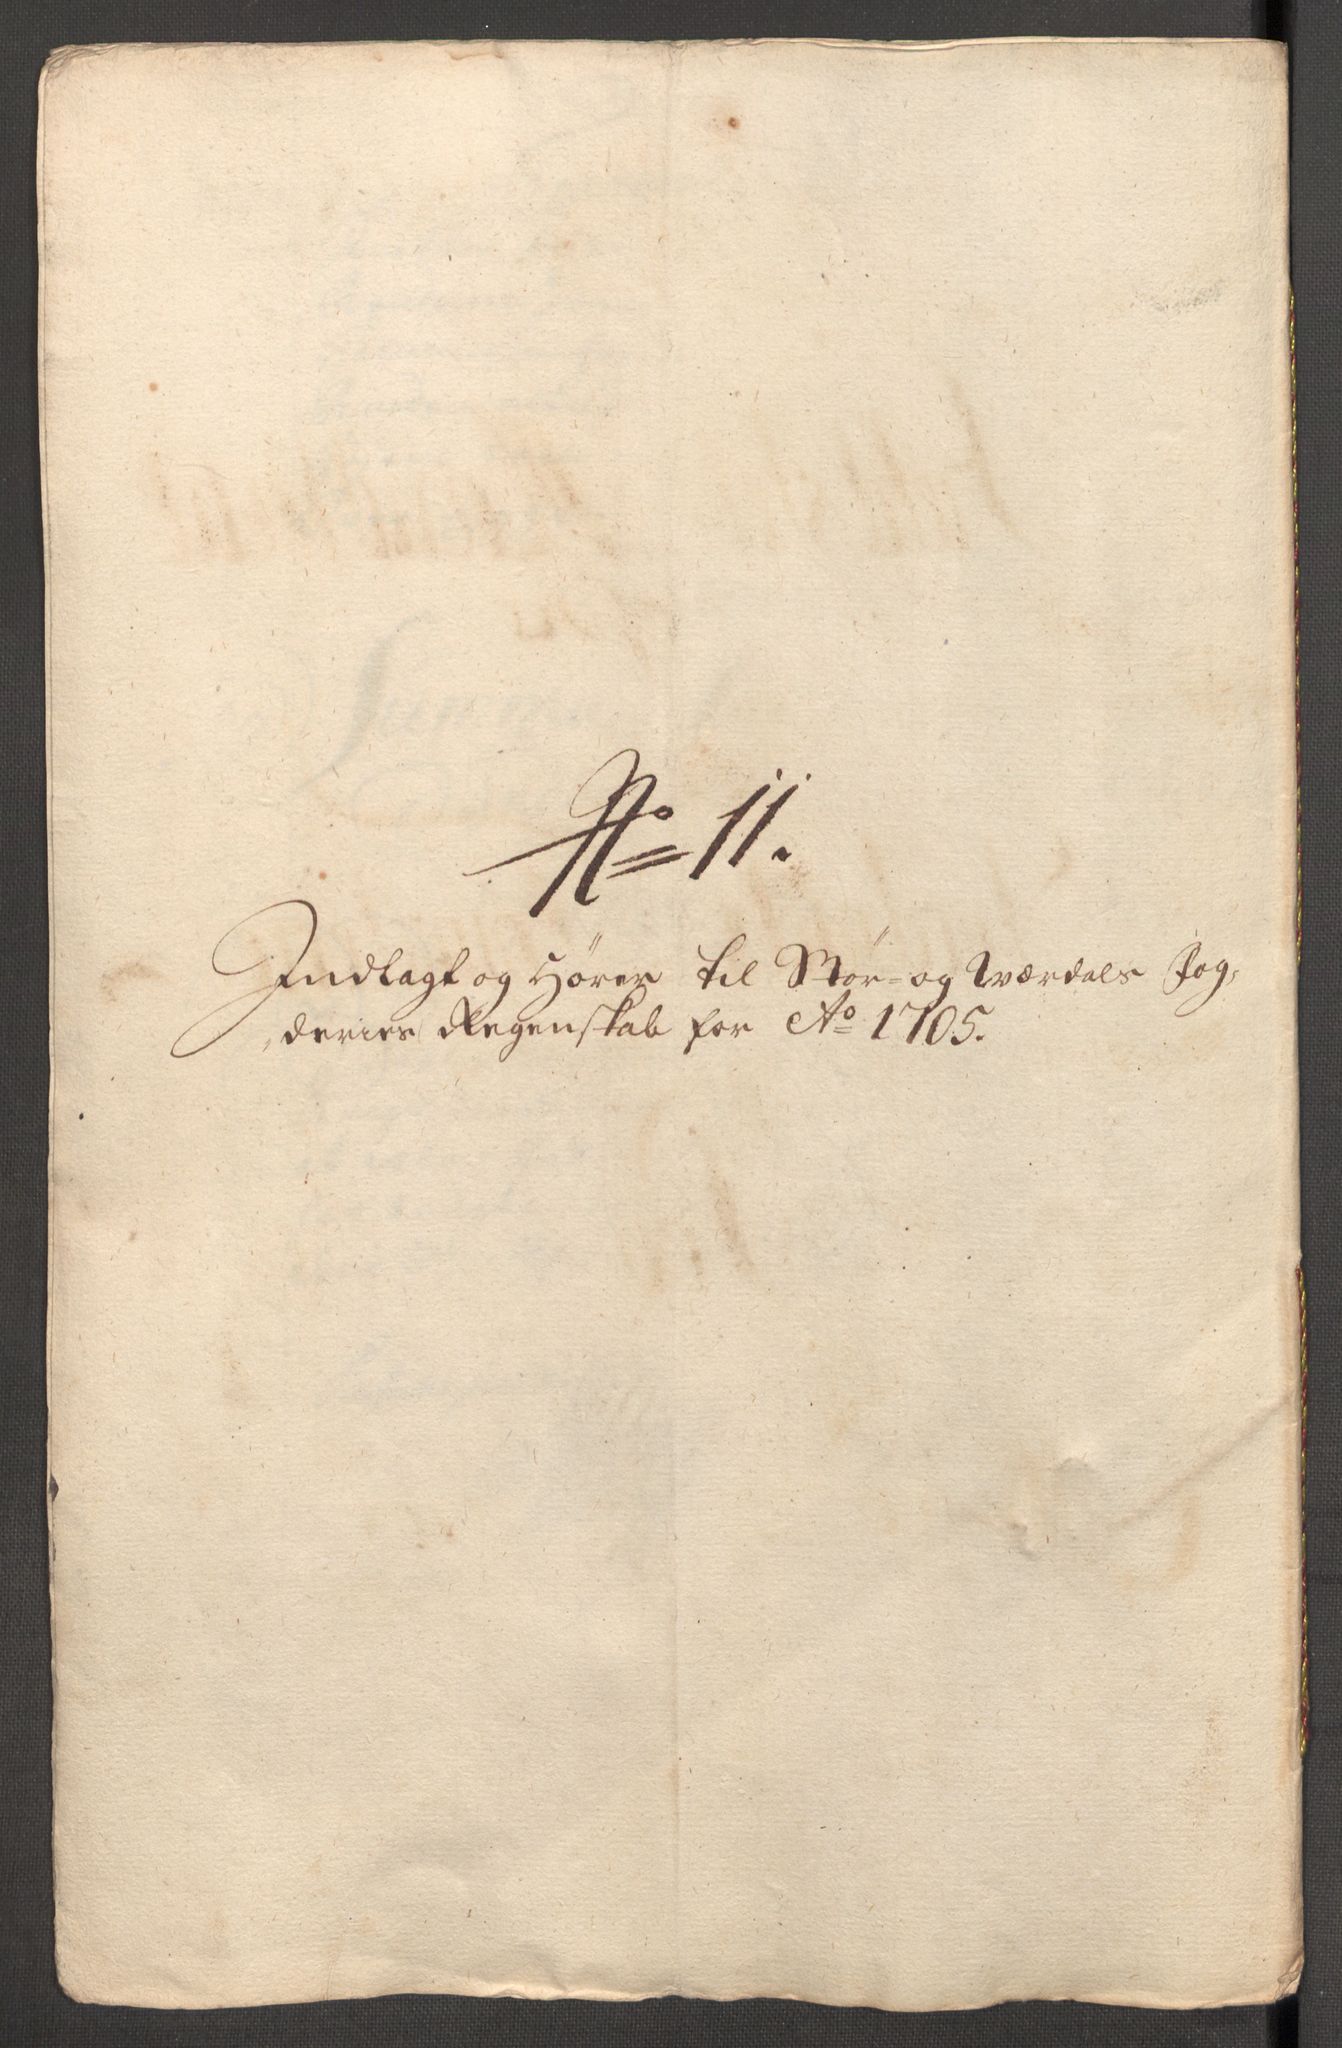 No 11.
Indlagt og Hører til Stør- og Værdals Fog-
deries Regenskab for Ao 1705.